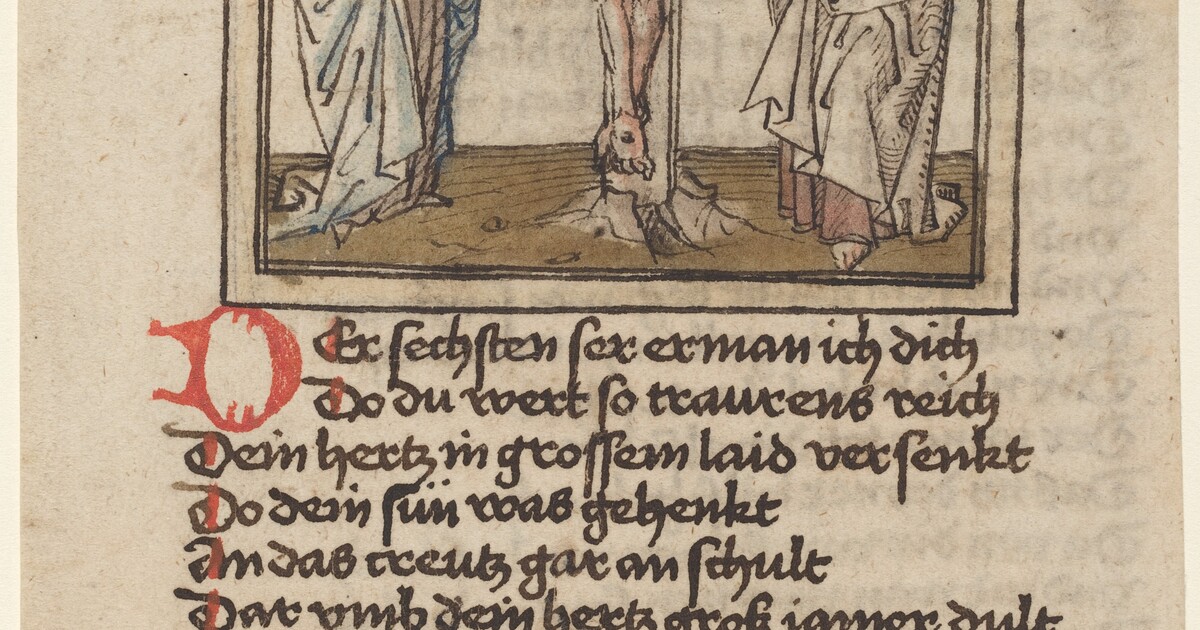 DEr sechsten ser erman ich dich
Do du wert so traurens reich
Dein hertz in grossem laid versenkt
Do dein sün was gehenkt
An das creutz gar an schult
Dar vmb dein hertz grosz iamer dult